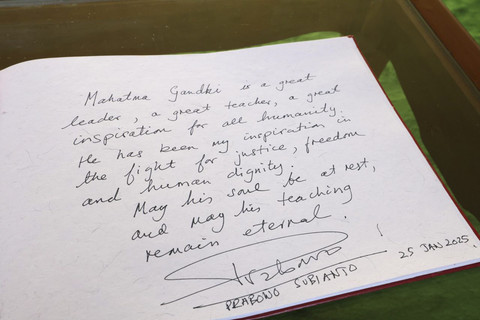 Mahatma Gandhi is a great
leader, a great teacher, a great
inspiration for all humanity.
He has been my inspiration in
the fight for justice, freedom
and human dignity.
May his soul be at rest,
and may his teaching
remain eternal.
Prabowo !
PRABOWO SUBIANTO
25 JAN 2025.